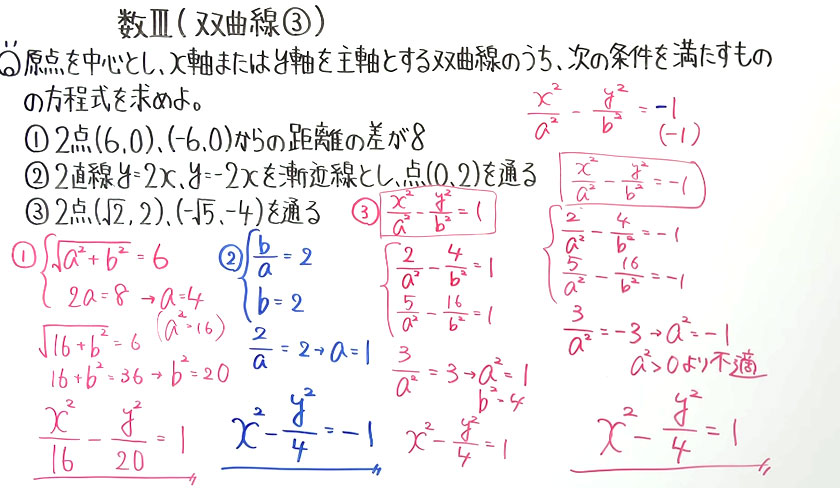 数Ⅲ(双曲線③)
Q 原点を中心とし、x軸またはy軸を主軸とする双曲線のうち、次の条件を満たすもの
の方程式を求めよ。
①2点(6,0)、(-6,0)からの距離の差が8
②2直線y=2x、y=-2xを漸近線とし、点(0,2)を通る
③2点(√2,2)、(-√5,-4)を通る
① √(a²+b²) = 6
2a=8 → a=4
(a²=16)
√(16+b²) = 6
16+b²=36 → b²=20
x²/16 - y²/20 = 1
② b/a = 2
b=2
2/a = 2 → a=1
x² - y²/4 = -1
③ x²/a² - y²/b² = 1
2/a² - 4/b² = 1
5/a² - 16/b² = 1
3/a² = 3 → a²=1
b²=4
x² - y²/4 = 1
x²/a² - y²/b² = -1
(-1)
x²/a² - y²/b² = -1
2/a² - 4/b² = -1
5/a² - 16/b² = -1
3/a² = -3 → a²=-1
a²>0より不適
x² - y²/4 = 1